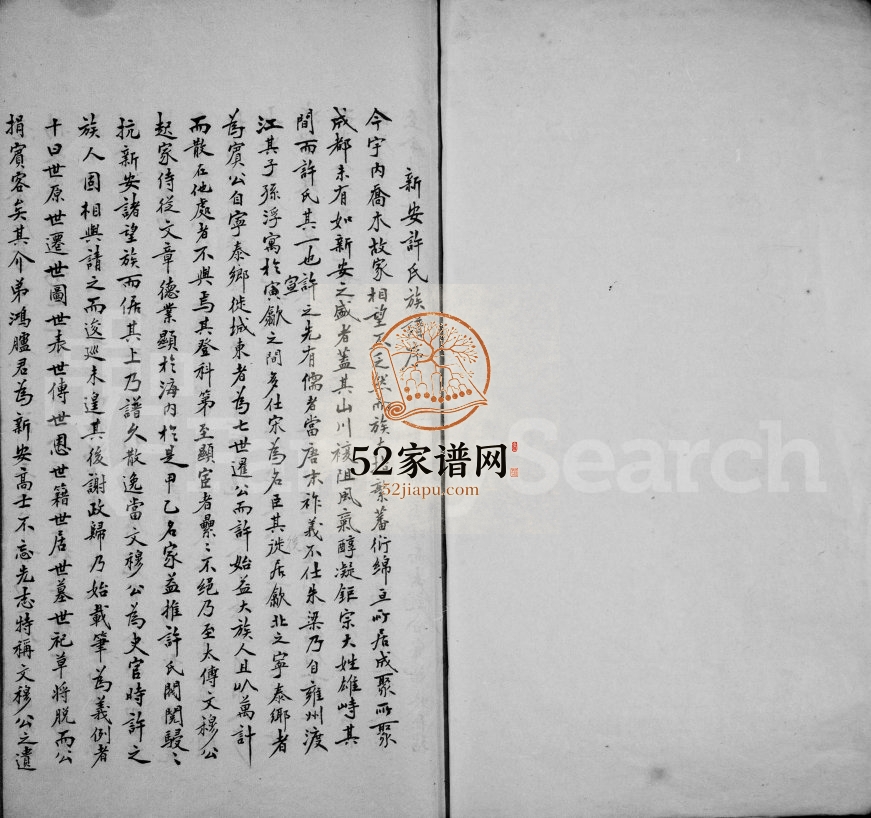 新安許氏族譜序
今宇内喬木故家相望不乏然而族大繁蕃衍綿亘所居成聚所聚
成都未有如新安之盛者蓋其山川襟阻風氣醇凝鉅宗大姓雄峙其
間而許氏其一也許之先有儒者當唐末祚義不仕朱梁乃自雍州渡
江其子孫浮寓於寅宣歙之間多仕宋為名臣其後徙居歙北之寧泰鄉者
為賓公自寧泰鄉徙城東者為七世暹公而許始益大族人且以萬計
而散在他處者不與焉其登科第至顯宦者纍〻不絕乃至太傅文穆公
起家侍從文章德業顯於海内於是甲乙名家益推許氏閥閱駸〻
抗新安諸望族而倨其上乃譜久散逸當文穆公為史官時許之
族人固相與請之而逡巡未遑其後謝政歸乃始載筆為義例者
十曰世原世遷世圖世表世傳世恩世籍世居世墓世祀草將脱而公
捐賓客矣其介弟鴻臚君為新安高士不忘先志特稱文穆公之遺
52家谱网
52jiapu.com
Search